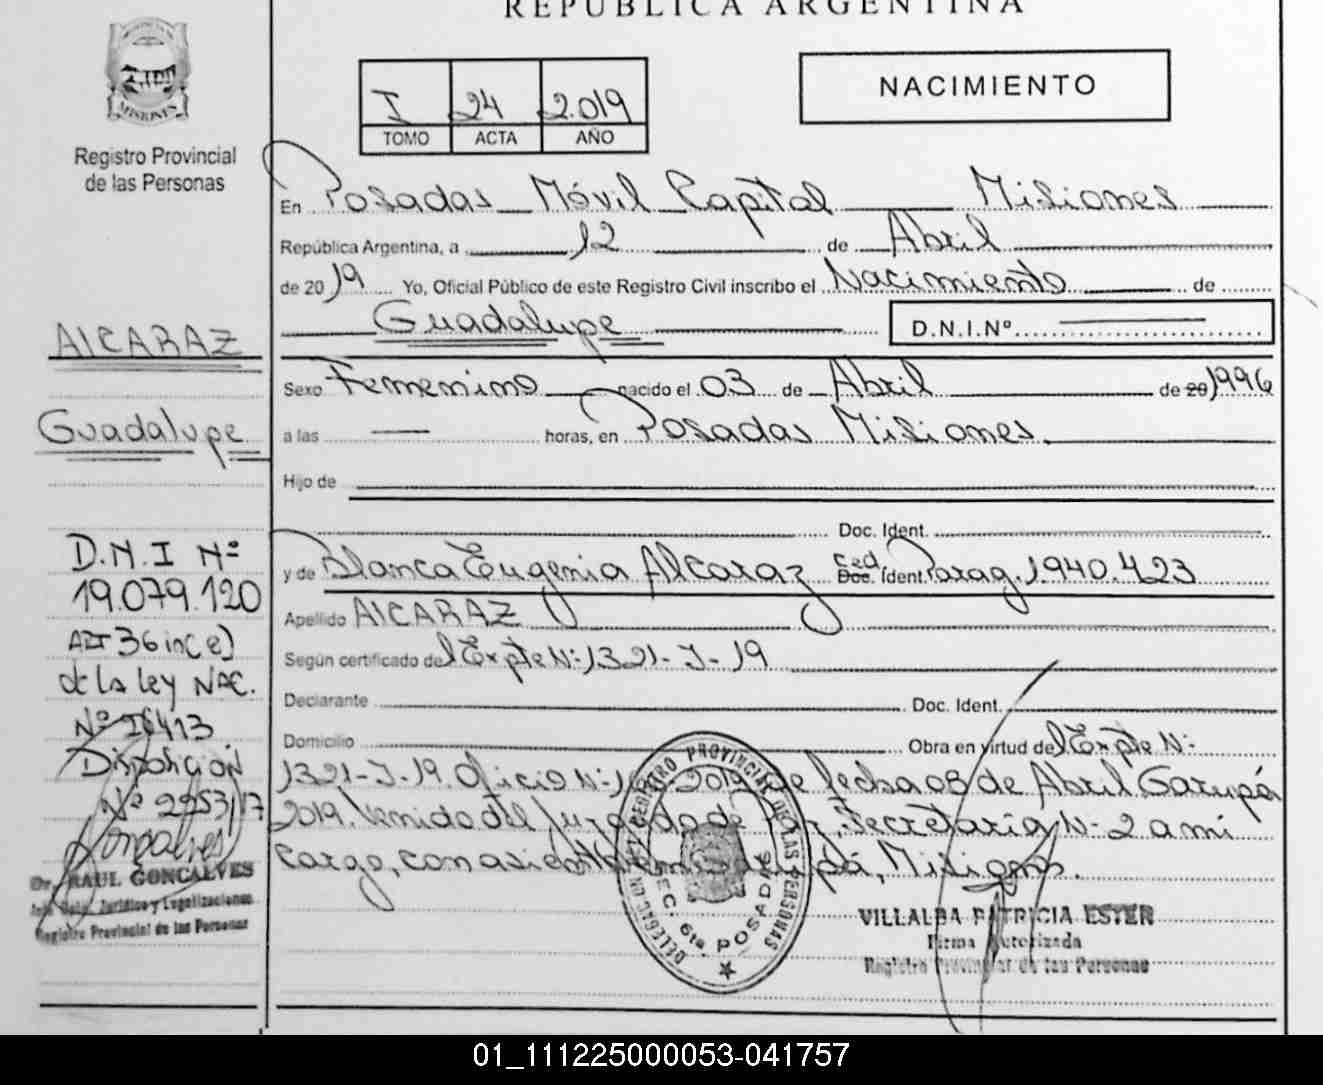 REPÚBLICA ARGENTINA
MISIONES
Registro Provincial
de las Personas
I 24 2.019
TOMO ACTA AÑO
NACIMIENTO
En Posadas Móvil Capital Misiones
República Argentina, a 12 de Abril
de 2019 Yo, Oficial Público de este Registro Civil inscribo el Nacimiento de
Guadalupe D.N.I.Nº
Sexo Femenino nacido el 03 de Abril de 20 1996
a las — horas, en Posadas Misiones.
Hijo de
Doc. Ident.
y de Blanca Eugenia Alcaraz Ced Doc. Ident. Parag. 1.940.423
Apellido AlCARAZ
Según certificado del Expte Nº 1321-J-19
Declarante Doc. Ident.
Domicilio Obra en virtud del Expte Nº
1321-J-19. Oficio Nº 2019 de fecha 08 de Abril Garupá
2019. Venido del Juzgado de Paz, Secretaria Nº 2 a mi
cargo, con asiento en Garupá, Misiones.
AlCARAZ
Guadalupe
D.N.I Nº
19.079.120
ART 36 inc e)
de la Ley NAC.
Nº 18413
Disposición
Nº 2253/17
Gonçalves
Dr. RAUL GONCALVES
Jurídico y Legalizaciones
Registro Provincial de las Personas
REGISTRO PROVINCIAL DE LAS PERSONAS
DELEGACION
SEC. 6ta POSADAS
VILLALBA PATRICIA ESTER
Firma Autorizada
Registro Provincial de las Personas
01_111225000053-041757